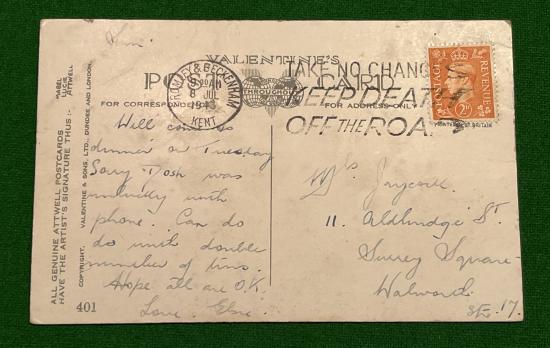 VALENTINE'S
POST CARD
FOR CORRESPONDENCE
FOR ADDRESS ONLY
BROMLEY & BECKENHAM
8 JUL
KENT
TAKE NO CHANCES
KEEP DEATH
OFF THE ROAD
POSTAGE
REVENUE
2D
Will come to
dinner on Tuesday
Sorry Dosh was
unlucky with
phone. Can do
do with double
number of tins.
Hope all are O.K.
Love. Elsie.
11. Aldbridge St.
Surrey Square
Walworth
17.
ALL GENUINE ATTWELL POSTCARDS
HAVE THE ARTIST'S SIGNATURE THUS:-
MABEL
LUCIE
ATTWELL
COPYRIGHT. VALENTINE & SONS, LTD., DUNDEE AND LONDON.
401